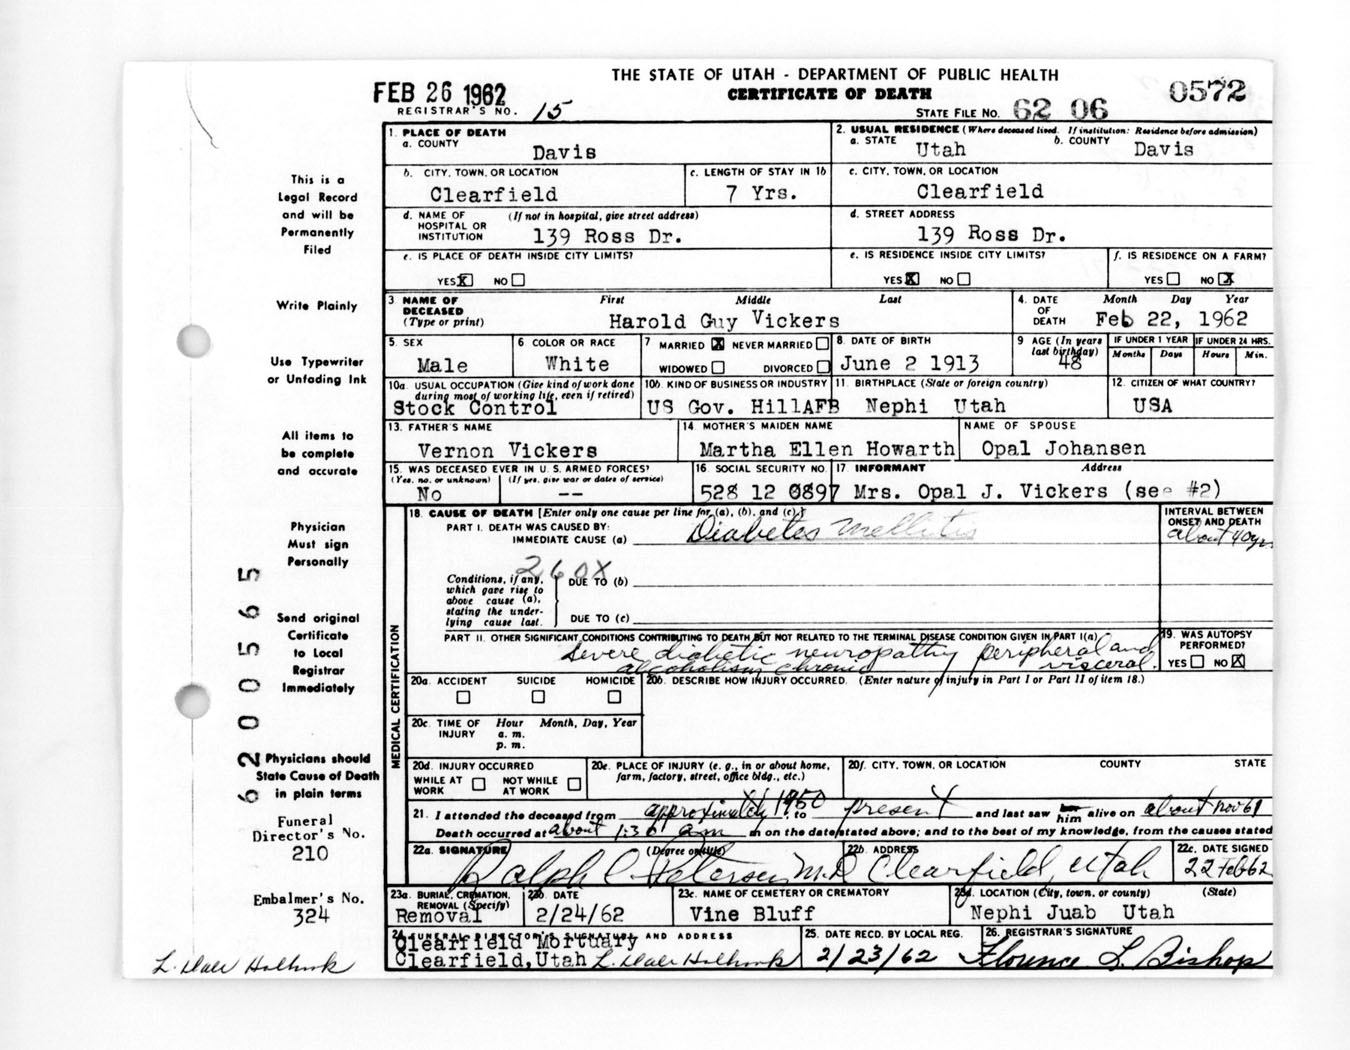 THE STATE OF UTAH - DEPARTMENT OF PUBLIC HEALTH
FEB 26 1962 CERTIFICATE OF DEATH 0572
REGISTRAR'S NO. 15 STATE FILE NO. 62 06
1. PLACE OF DEATH
a. COUNTY Davis
2. USUAL RESIDENCE (Where deceased lived. If institution: Residence before admission)
a. STATE Utah b. COUNTY Davis
b. CITY, TOWN, OR LOCATION Clearfield
c. LENGTH OF STAY IN 1b 7 Yrs.
c. CITY, TOWN, OR LOCATION Clearfield
d. NAME OF HOSPITAL OR INSTITUTION (If not in hospital, give street address) 139 Ross Dr.
d. STREET ADDRESS 139 Ross Dr.
e. IS PLACE OF DEATH INSIDE CITY LIMITS? YES X NO
e. IS RESIDENCE INSIDE CITY LIMITS? YES X NO
f. IS RESIDENCE ON A FARM? YES NO X
3 NAME OF DECEASED (Type or print) First Middle Last
Harold Guy Vickers
4. DATE OF DEATH Month Day Year
Feb 22, 1962
5. SEX Male
6 COLOR OR RACE White
7 MARRIED X NEVER MARRIED
WIDOWED DIVORCED
8. DATE OF BIRTH June 2 1913
9 AGE (In years last birthday) 48
IF UNDER 1 YEAR Months Days
IF UNDER 24 HRS. Hours Min.
10a. USUAL OCCUPATION (Give kind of work done during most of working life, even if retired) Stock Control
10b. KIND OF BUSINESS OR INDUSTRY US Gov. HillAFB
11. BIRTHPLACE (State or foreign country) Nephi Utah
12. CITIZEN OF WHAT COUNTRY? USA
13. FATHER'S NAME Vernon Vickers
14. MOTHER'S MAIDEN NAME Martha Ellen Howarth
NAME OF SPOUSE Opal Johansen
15. WAS DECEASED EVER IN U.S. ARMED FORCES?
(Yes, no, or unknown) No (If yes, give war or dates of service) --
16. SOCIAL SECURITY NO. 528 12 0897
17. INFORMANT Address
Mrs. Opal J. Vickers (see #2)
MEDICAL CERTIFICATION
18. CAUSE OF DEATH [Enter only one cause per line for (a), (b), and (c).]
PART I. DEATH WAS CAUSED BY:
IMMEDIATE CAUSE (a) Diabetes Mellitis
INTERVAL BETWEEN ONSET AND DEATH
about 40yrs
260X
Conditions, if any, which gave rise to above cause (a), stating the underlying cause last.
DUE TO (b)
DUE TO (c)
PART II. OTHER SIGNIFICANT CONDITIONS CONTRIBUTING TO DEATH BUT NOT RELATED TO THE TERMINAL DISEASE CONDITION GIVEN IN PART I(a)
severe diabetic neuropathy peripheral and
alcoholism chronic visceral.
19. WAS AUTOPSY PERFORMED?
YES NO X
20a. ACCIDENT SUICIDE HOMICIDE
20b. DESCRIBE HOW INJURY OCCURRED. (Enter nature of injury in Part I or Part II of item 18.)
20c. TIME OF INJURY Hour Month, Day, Year
a. m.
p. m.
20d. INJURY OCCURRED
WHILE AT WORK NOT WHILE AT WORK
20e. PLACE OF INJURY (e. g., in or about home, farm, factory, street, office bldg., etc.)
20f. CITY, TOWN, OR LOCATION COUNTY STATE
21. I attended the deceased from approximately 1950, to present and last saw him alive on about nov 61
Death occurred at about 1:30 am m on the date stated above; and to the best of my knowledge, from the causes stated
22a. SIGNATURE (Degree or title) Ralph C. Petersen M.D.
22b. ADDRESS Clearfield, Utah
22c. DATE SIGNED 22 Feb 62
23a. BURIAL, CREMATION, REMOVAL (Specify) Removal
23b. DATE 2/24/62
23c. NAME OF CEMETERY OR CREMATORY Vine Bluff
23d. LOCATION (City, town, or county) (State)
Nephi Juab Utah
24. FUNERAL DIRECTOR'S SIGNATURE AND ADDRESS
Clearfield Mortuary
Clearfield, Utah L. Dale Holbrook
25. DATE RECD. BY LOCAL REG. 2/23/62
26. REGISTRAR'S SIGNATURE Florence L. Bishop
This is a
Legal Record
and will be
Permanently
Filed
Write Plainly
Use Typewriter
or Unfading Ink
All items to
be complete
and accurate
Physician
Must sign
Personally
Send original
Certificate
to Local
Registrar
Immediately
Physicians should
State Cause of Death
in plain terms
Funeral
Director's No.
210
Embalmer's No.
324
L. Dale Holbrook
6200565